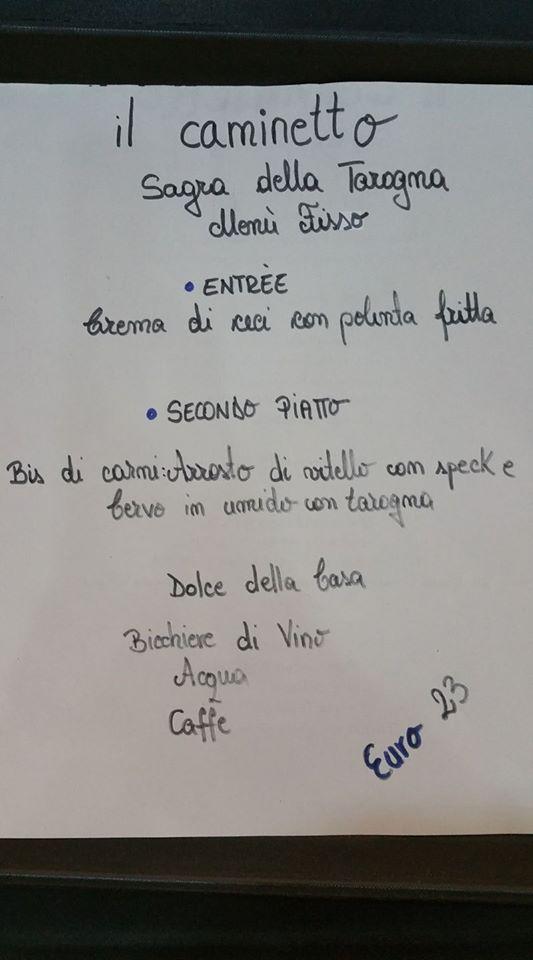 il caminetto
Sagra della Taragna
Menù Fisso
• ENTRÈE
Crema di ceci con polenta fritta
• SECONDO PIATTO
Bis di carni: Arrosto di vitello con speck e
Cervo in umido con taragna
Dolce della Casa
Bicchiere di Vino
Acqua
Caffè
Euro 23